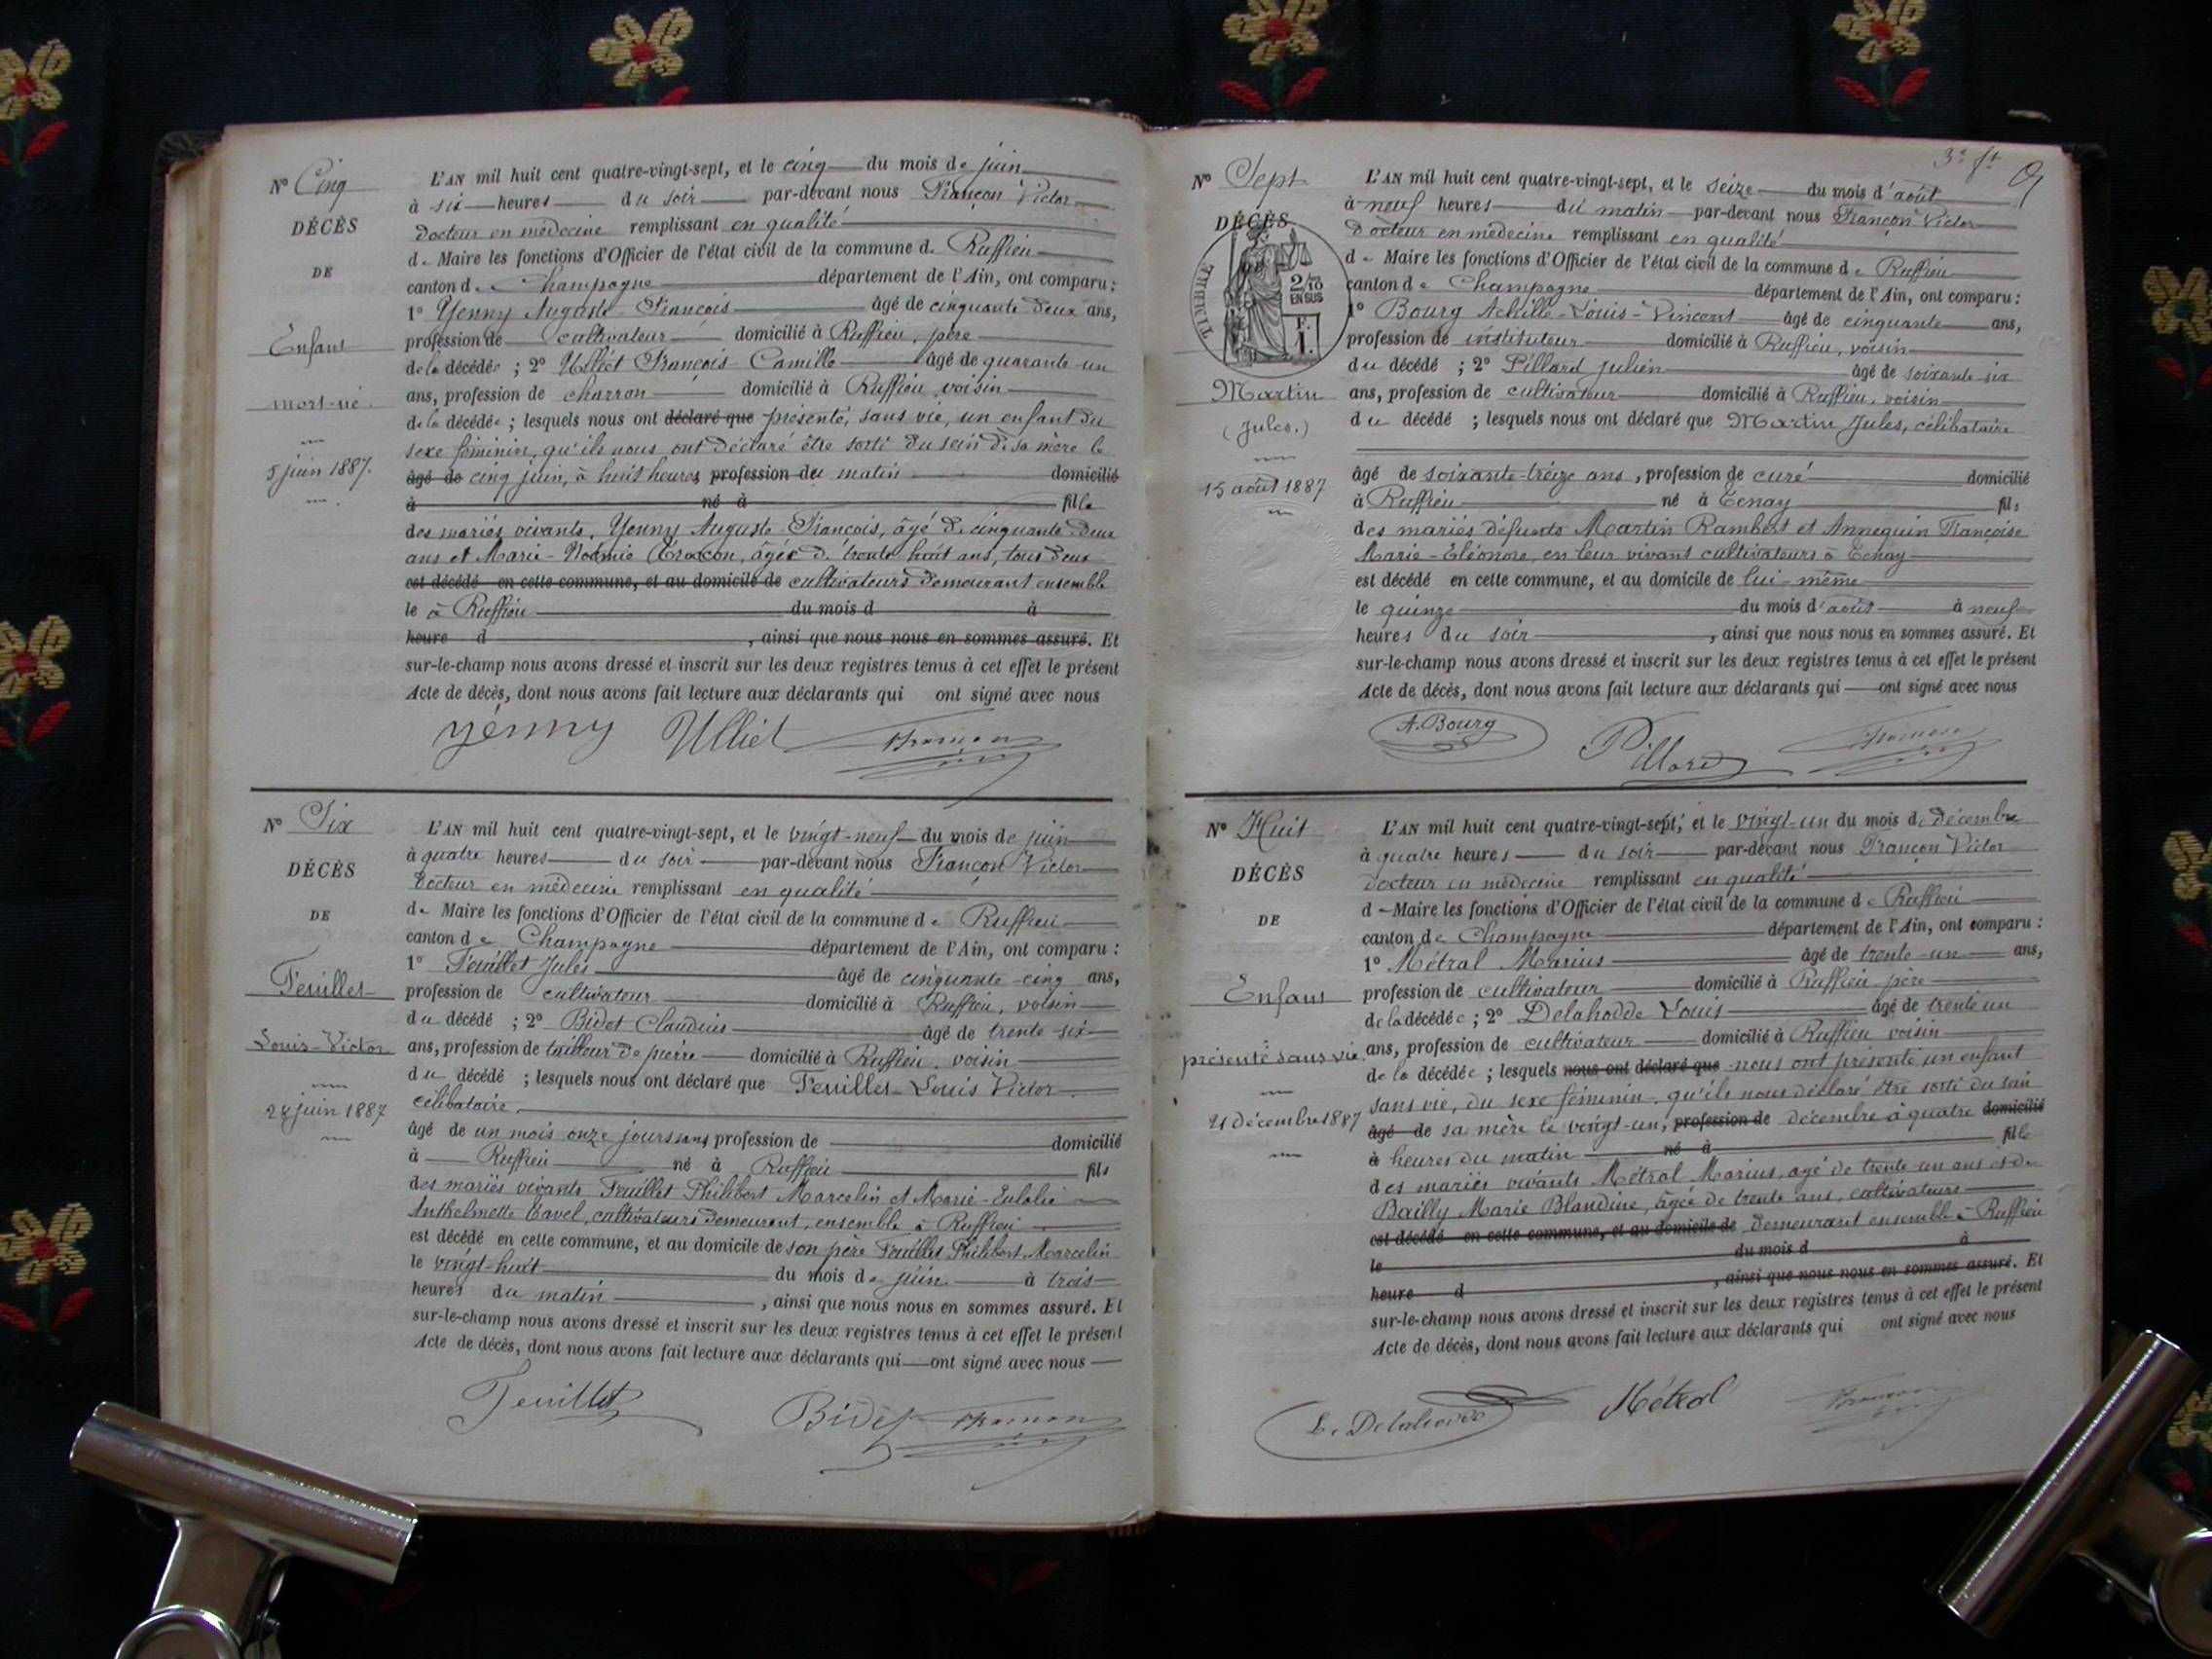 N° Cinq
DÉCÈS
DE
Enfant
mort-né.
5 juin 1887.
L'AN mil huit cent quatre-vingt-sept, et le cinq du mois de juin
à six heures du soir par-devant nous Françon Victor
docteur en médecine remplissant en qualité
de Maire les fonctions d'Officier de l'état civil de la commune de Ruffieu
canton de Champagne département de l'Ain, ont comparu :
1° Yenny Auguste François âgé de cinquante deux ans,
profession de cultivateur domicilié à Ruffieu, père
de la décédée ; 2° Ulliet François-Camille âgé de quarante un
ans, profession de charron domicilié à Ruffieu, voisin
de la décédée ; lesquels nous ont déclaré que présenté, sans vie, un enfant du
sexe féminin, qu'ils nous ont déclaré être sorti du sein de sa mère le
âgé de cinq juin, à huit heures profession du matin domicilié
à né à fille
des mariés vivants, Yenny Auguste-François, âgé de cinquante deux
ans et Marie-Noémie, âgée de trente huit ans, tous deux
est décédé en cette commune, et au domicile de cultivateurs demeurant ensemble
le à Ruffieu du mois d à
heure d , ainsi que nous nous en sommes assuré. Et
sur-le-champ nous avons dressé et inscrit sur les deux registres tenus à cet effet le présent
Acte de décès, dont nous avons fait lecture aux déclarants qui ont signé avec nous
yenny Ulliet Françon
N° Six
DÉCÈS
DE
Feuillet
Louis-Victor
28 juin 1887
L'AN mil huit cent quatre-vingt-sept, et le vingt-neuf du mois de juin
à quatre heures du soir par-devant nous Françon Victor
docteur en médecine remplissant en qualité
de Maire les fonctions d'Officier de l'état civil de la commune de Ruffieu
canton de Champagne département de l'Ain, ont comparu :
1° Feuillet Jules âgé de cinquante-cinq ans,
profession de cultivateur domicilié à Ruffieu, voisin
du décédé ; 2° Bidet Claudius âgé de trente-six
ans, profession de tailleur de pierre domicilié à Ruffieu, voisin
du décédé ; lesquels nous ont déclaré que Feuillet Louis Victor
célibataire,
âgé de un mois onze jours sans profession de domicilié
à Ruffieu né à Ruffieu fils
des mariés vivants Feuillet Philibert Marcelin et Marie-Eulalie
Anthelmette Cavel, cultivateurs demeurant, ensemble à Ruffieu
est décédé en cette commune, et au domicile de son père Feuillet Philibert Marcelin
le vingt-huit du mois de juin à trois
heures du matin , ainsi que nous nous en sommes assuré. Et
sur-le-champ nous avons dressé et inscrit sur les deux registres tenus à cet effet le présent
Acte de décès, dont nous avons fait lecture aux déclarants qui ont signé avec nous
Feuillet Bidet Françon
N° Sept
DÉCÈS
TIMBRE
2/10
EN SUS
F.
1.
Martin
(Jules.)
15 août 1887
L'AN mil huit cent quatre-vingt-sept, et le seize du mois d'août
à neuf heures du matin par-devant nous Françon Victor
docteur en médecine remplissant en qualité
de Maire les fonctions d'Officier de l'état civil de la commune de Ruffieu
canton de Champagne département de l'Ain, ont comparu :
1° Bourg Achille-Louis-Vincent âgé de cinquante ans,
profession de instituteur domicilié à Ruffieu, voisin
du décédé ; 2° Pillard Julien âgé de soixante-six
ans, profession de cultivateur domicilié à Ruffieu, voisin
du décédé ; lesquels nous ont déclaré que Martin Jules, célibataire
âgé de soixante-treize ans, profession de curé domicilié
à Ruffieu né à Tenay fils
des mariés défunts Martin Rambert et Annequin Françoise
Marie-Eléonore, en leur vivant cultivateurs à Tenay
est décédé en cette commune, et au domicile de lui-même
le quinze du mois d'août à neuf
heures du soir , ainsi que nous nous en sommes assuré. Et
sur-le-champ nous avons dressé et inscrit sur les deux registres tenus à cet effet le présent
Acte de décès, dont nous avons fait lecture aux déclarants qui ont signé avec nous
A. Bourg Pillard Françon
N° Huit
DÉCÈS
DE
Enfant
présenté sans vie.
21 décembre 1887
L'AN mil huit cent quatre-vingt-sept, et le vingt-un du mois de décembre
à quatre heures du soir par-devant nous Françon Victor
docteur en médecine remplissant en qualité
d Maire les fonctions d'Officier de l'état civil de la commune de Ruffieu
canton de Champagne département de l'Ain, ont comparu :
1° Métral Marius âgé de trente-un ans,
profession de cultivateur domicilié à Ruffieu père
de la décédée ; 2° Delahodde Louis âgé de trente un
ans, profession de cultivateur domicilié à Ruffieu voisin
de la décédée ; lesquels nous ont déclaré que nous ont présenté un enfant
sans vie, du sexe féminin, qu'ils nous déclaré être sorti du sein
âgé de sa mère le vingt-un, profession de décembre à quatre domicilié
à heures du matin né à fille
des mariés vivants Métral Marius, agé de trente un ans et de
Bailly Marie Blandine, âgée de trente ans, cultivateurs
est décédé en cette commune, et au domicile de demeurant ensemble à Ruffieu
le du mois d à
heure d , ainsi que nous nous en sommes assuré. Et
sur-le-champ nous avons dressé et inscrit sur les deux registres tenus à cet effet le présent
Acte de décès, dont nous avons fait lecture aux déclarants qui ont signé avec nous
L. Delahodde Métral Françon